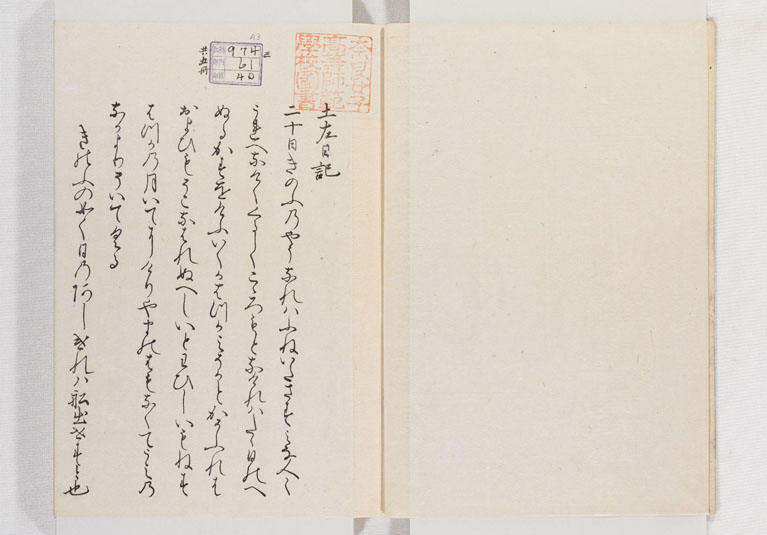 奈良女子
高等師範
學校圖書
A3
三
974
61
40
共五冊
土左日記
二十日きのふ乃やうなれハふねいたさすみな人〱
うれへなけくくるしくこゝろもとなけれハたゝ日のへ
ぬるかすをけふいくかはつかみそかとかそふれは
およひもそこなはれぬへしいとわひしいもねす
はつか乃月いてにけりやまのはもなくてうみ乃
なかよりそいてくる
きのふの如く日乃あしけれハ船出さすと也